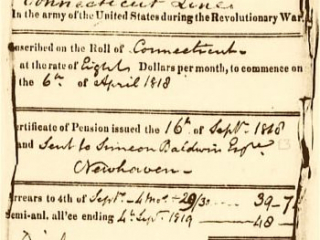 Connecticut Line
In the army of the United States during the Revolutionary War.
nscribed on the Roll of Connecticut
at the rate of Eight Dollars per month, to commence on
the 6th of April 1818
ertificate of Pension issued the 16th of Septr. 1818
and Sent to Simeon Baldwin Esqr.
Newhaven
rrears to 4th of Septr. 4 mos. 29/30 39-7
emi-anl. all'ce ending 4th Septr. 1819 48-